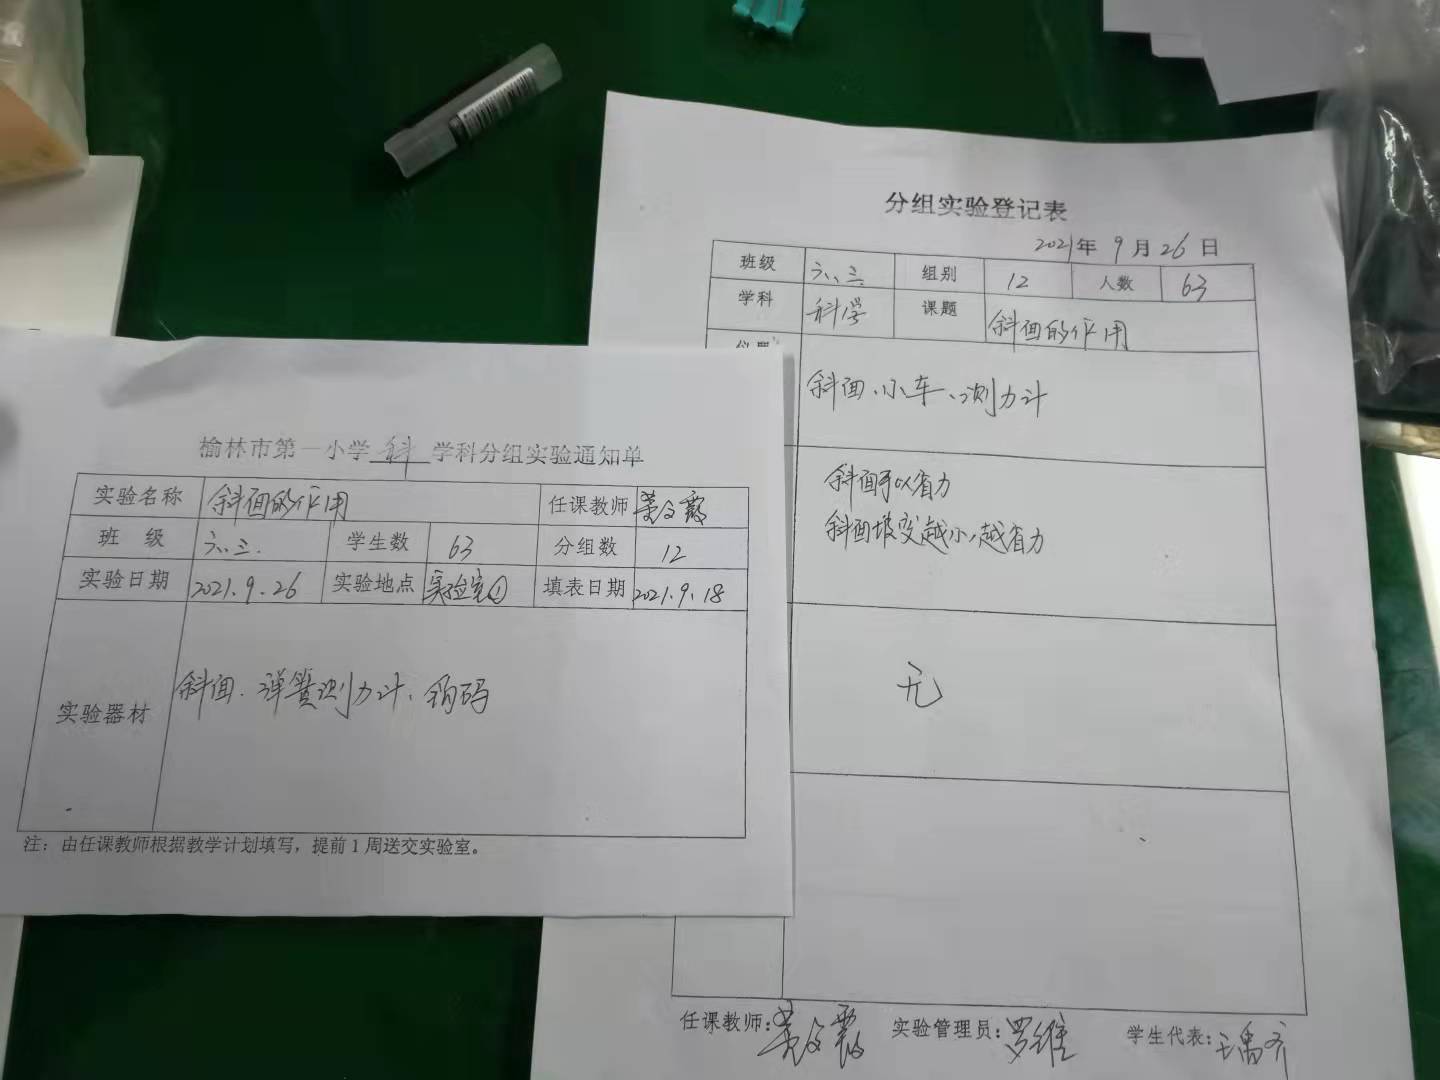 榆林市第一小学 科 学科分组实验通知单
实验名称 斜面的作用 任课教师
班 级 六.三. 学生数 63 分组数 12
实验日期 2021.9.26 实验地点 实验室① 填表日期 2021.9.18
实验器材 斜面、弹簧测力计、钩码
注：由任课教师根据教学计划填写，提前1周送交实验室。
分组实验登记表
2021年 9月 26日
班级 六、三 组别 12 人数 63
学科 科学 课题 斜面的作用
斜面、小车、测力计
斜面可以省力
斜面坡度越小,越省力
无
任课教师: 实验管理员:罗维 学生代表: